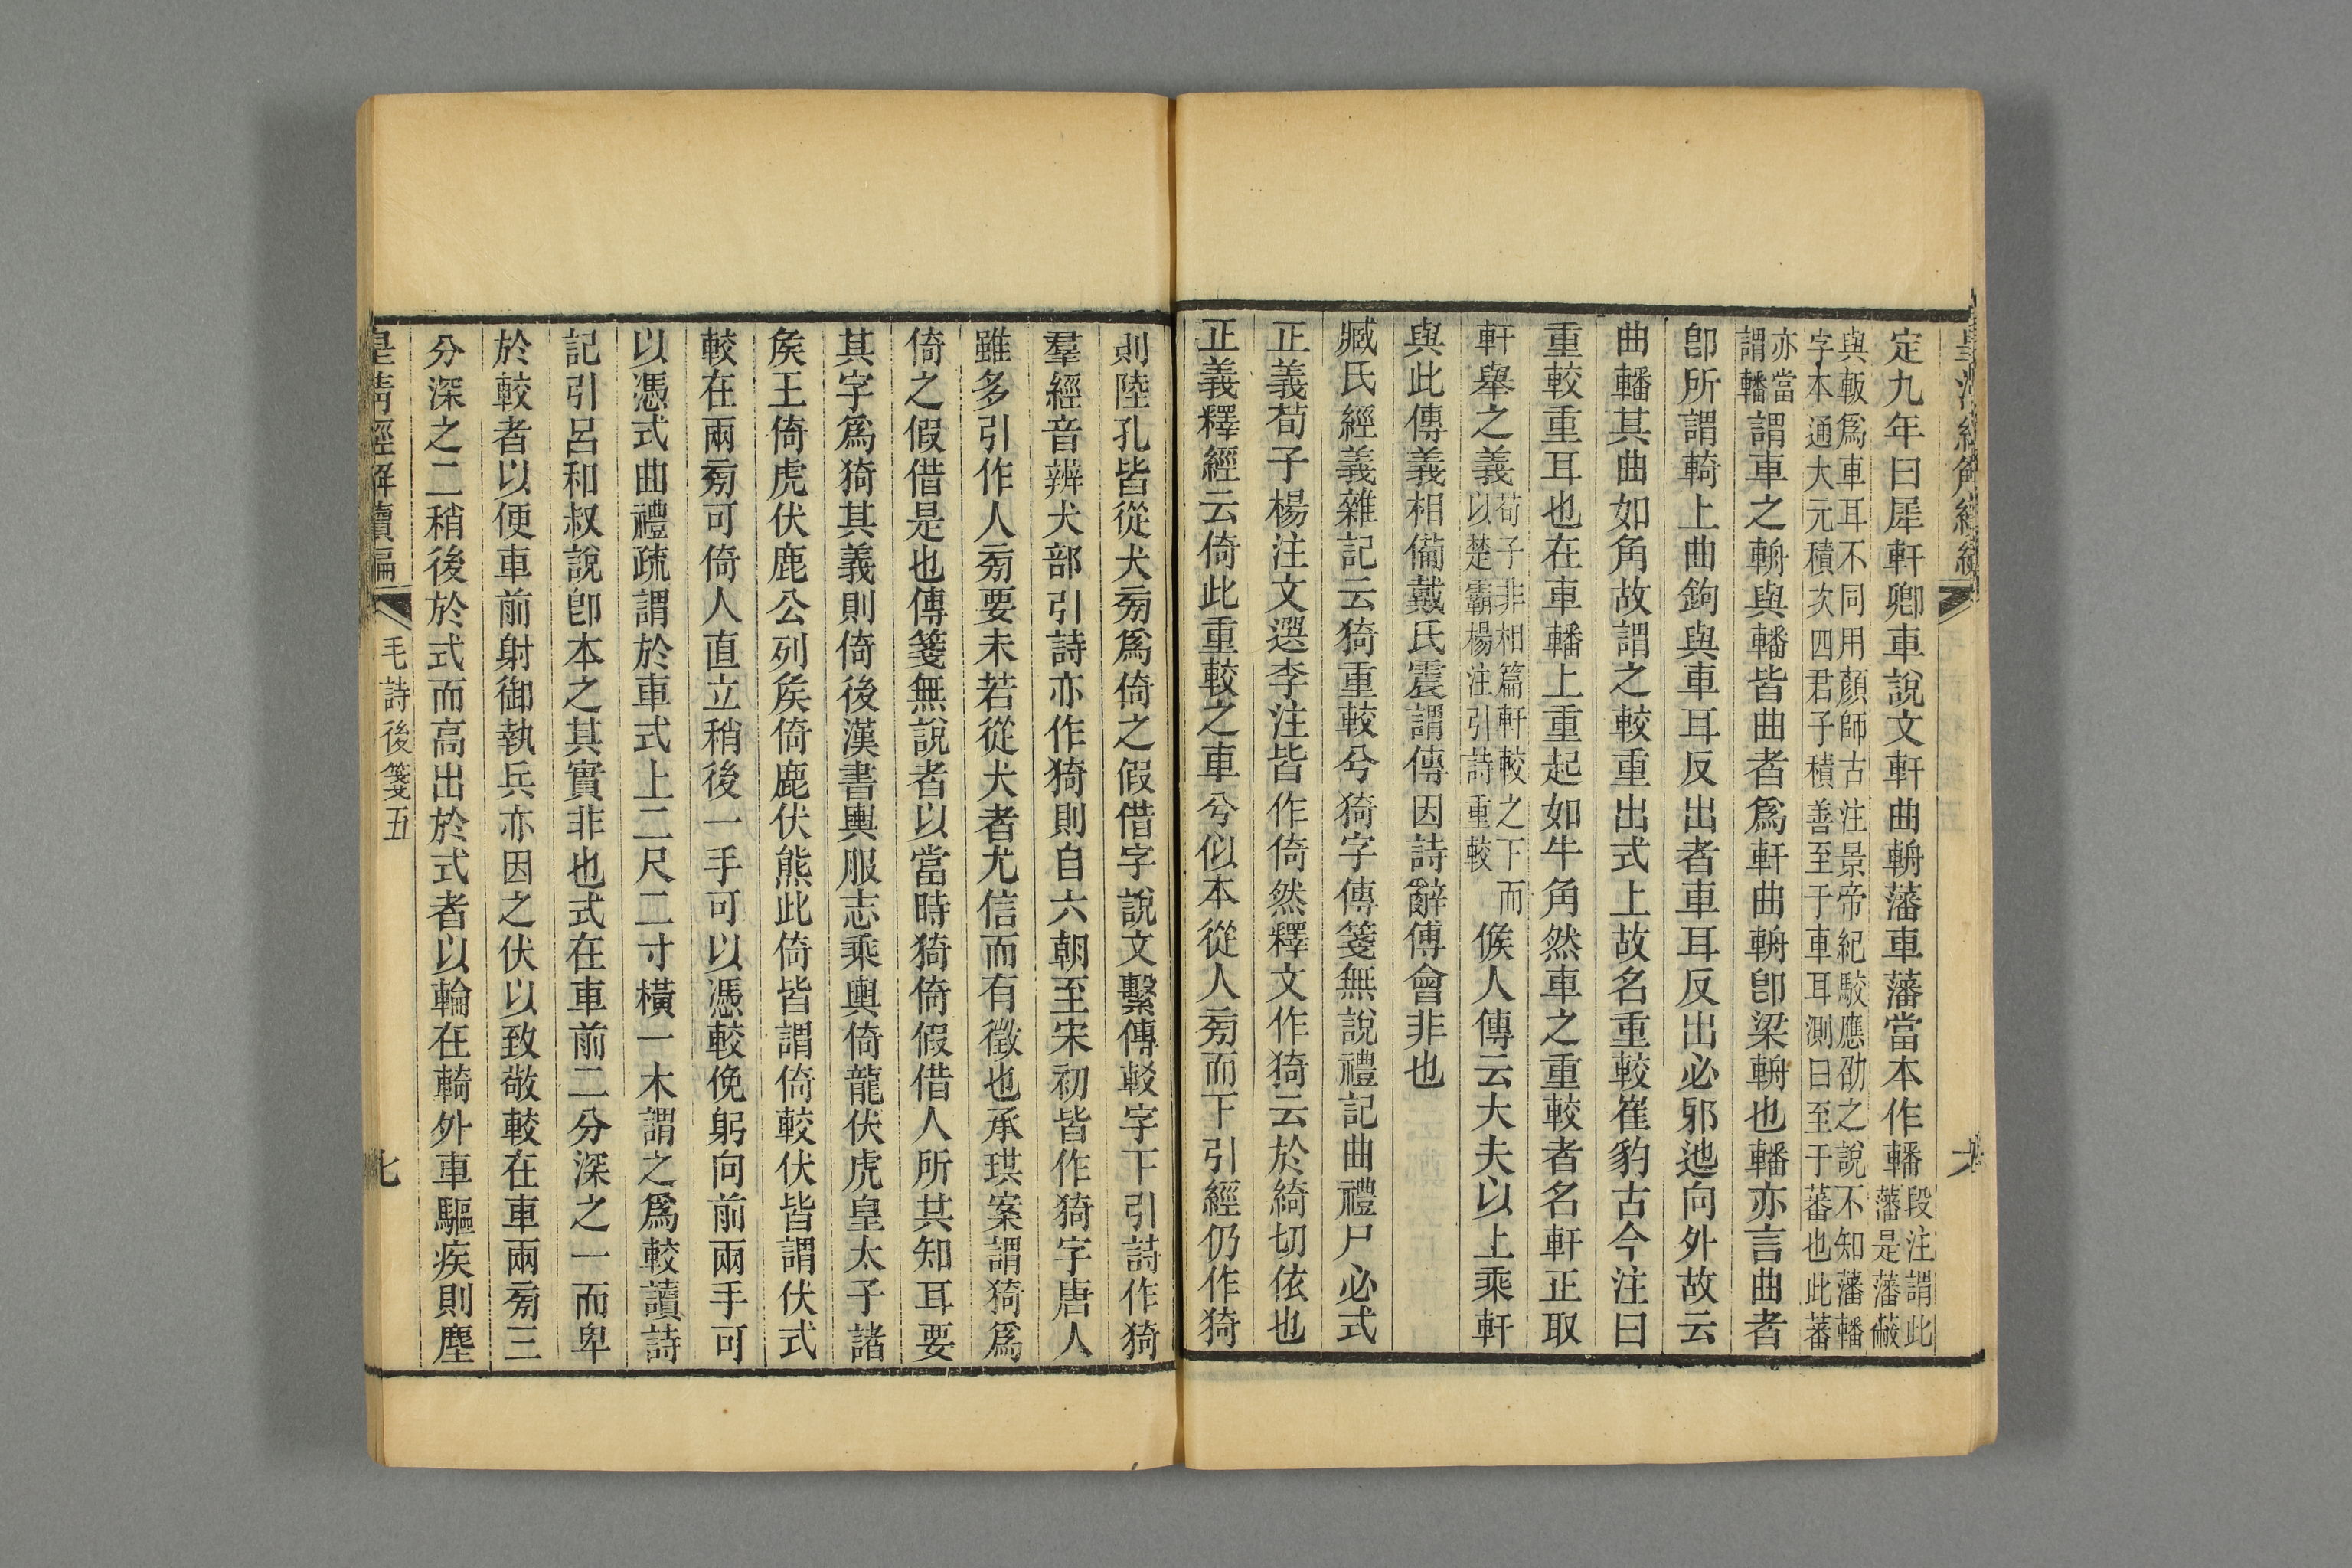 定九年曰犀軒卿車說文軒曲輈藩車藩當本作轓段注謂此藩是藩蔽
與軬爲車耳不同用顏師古注景帝紀駮應劭之說不知藩轓
字本通大元積次四君子積善至于車耳測曰至于蕃也此蕃
亦當謂轓謂車之輈與轓皆曲者爲軒曲輈卽梁輈也轓亦言曲者
卽所謂輢上曲鉤與車耳反出者車耳反出必邪迆向外故云
曲轓其曲如角故謂之較重出式上故名重較崔豹古今注曰
重較重耳也在車轓上重起如牛角然車之重較者名軒正取
軒舉之義荀子非相篇軒較之下而以楚霸楊注引詩重較候人傳云大夫以上乘軒
與此傳義相僃戴氏震謂傳因詩辭傅會非也
臧氏經義雜記云猗重較兮猗字傳箋無說禮記曲禮尸必式
正義荀子楊注文選李注皆作倚然釋文作猗云於綺切依也
正義釋經云倚此重較之車兮似本從人㫄而下引經仍作猗
則陸孔皆從犬㫄爲倚之假借字說文繫傳較字下引詩作猗
羣經音辨犬部引詩亦作猗則自六朝至宋初皆作猗字唐人
雖多引作人㫄要未若從犬者尤信而有徵也承珙案謂猗爲
倚之假借是也傳箋無說者以當時猗倚假借人所共知耳要
其字爲猗其義則倚後漢書輿服志乘輿倚龍伏虎皇太子諸
矦王倚虎伏鹿公列矦倚鹿伏熊此倚皆謂倚較伏皆謂伏式
較在兩㫄可倚人直立稍後一手可以憑較俛躬向前兩手可
以憑式曲禮疏謂於車式上二尺二寸橫一木謂之爲較讀詩
記引呂和叔說卽本之其實非也式在車前二分深之一而卑
於較者以便車前射御執兵亦因之伏以致敬較在車兩㫄三
分深之二稍後於式而高出於式者以輪在輢外車驅疾則塵
皇清經解續編
毛詩後箋五